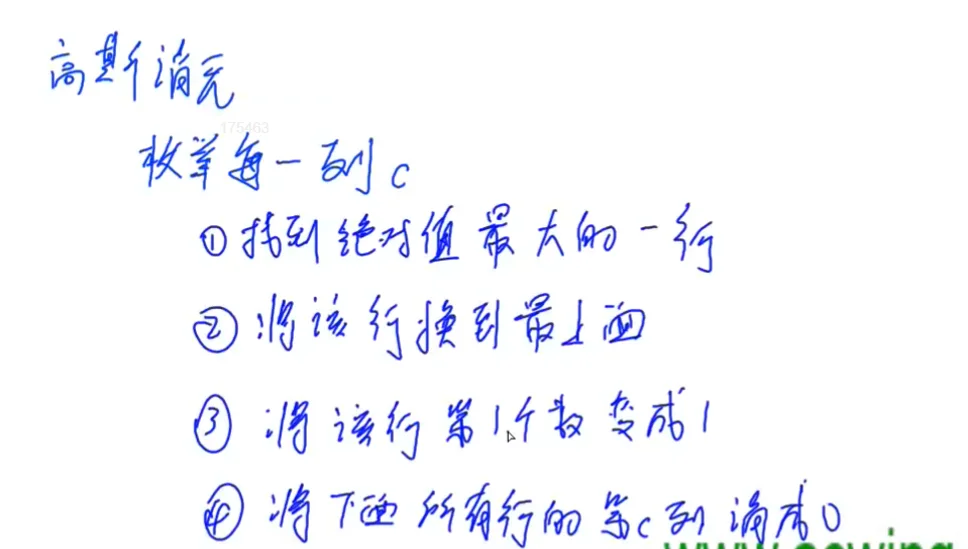 高斯消元
175463
枚举每一列c
①找到绝对值最大的一行
②将该行换到最上面
③将该行第1个数变成1
④将下面所有行的第c列消成0